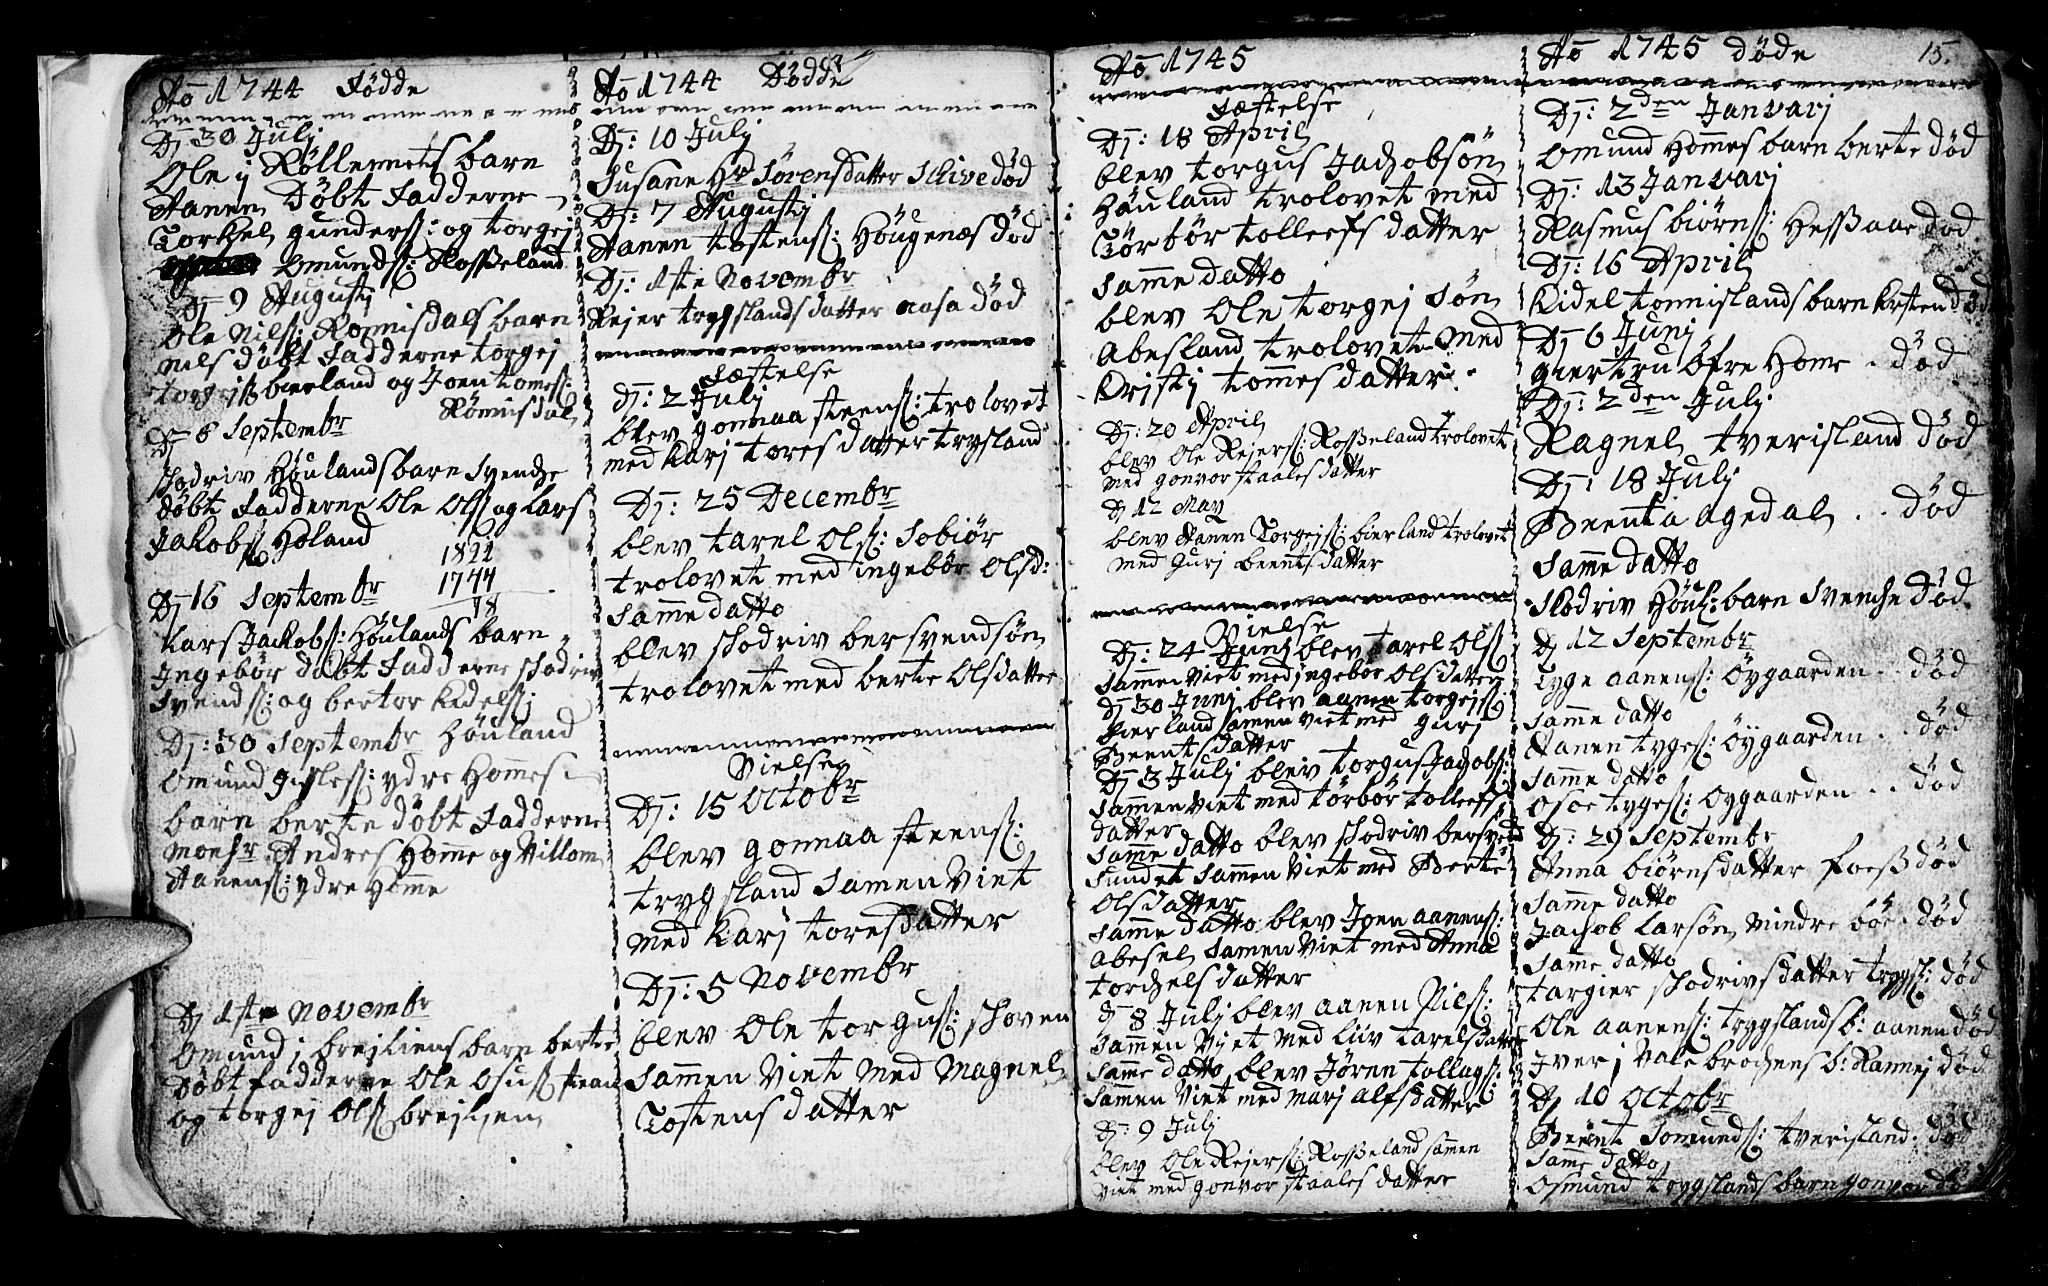 Ao 1744 Fødde
Dj 30 Julj
Ole j Røllemets barn
Aanen Døbt Fadderne
Torkel gunderss: og torgej
omundss: Rosseland
Dj 9 Augustj
Ole Nilss: Romisdals barn
nils døbt Fadderne torgej
torgejss bierland og Joen tomess:
Rømisdal
Dj 6 Septembr
Skodriv Høulands barn Svenche
døbt Fadderne Ole Olss og Lars
Jakobss Høland
1822
1744
78
Dj 16 Septembr
Lars Jackobss: Høulands barn
Ingebør døbt Fadderne skodriv
Svendss: og bertor Kidelss
Dj: 30 Septembr Høuland
omund ydre Hommes
barn berte døbt Fadderne
monsr. Andres Homme og Villom
Aanenss: ydre Homme
Dj 1ste Novembr
omund j brejliens barn berte
Døbt fadderne Ole Osuss
og torgej Olss brejljen
Ao 1744 Dødde
Dj: 10 Julj
Susane Hr Sørensdatter Schive død
Dj: 7 Augustj
Aanen tostenss: Høugenæs død
Dj: 1ste Novembr
Rejer trygslands datter aasa død
Fæstelse
dj: 2 Julj
blev gonnaa steenss: trolovet
med Karj toresdatter trysland
Dj: 25 Decembr
blev tarel Olss: Sobiør
trolovet med ingebør Olsd:
Samme datto
blev skodriv bersvendsøn
trolovet med berte Olsdatter
Vielse
Dj: 15 Octobr
blev gonnaa steenss:
trygsland Samen Viet
med Karj toresdatter
Dj: 5 Novembr
blev Ole torguss: skoven
Samen Viet med Magnel
Tostensdatter
Ao 1745
Fæstelse
Dj: 18 April
blev torgus Jachobsøn
Høuland trolovet med
Tørbør tolleefsdatter
Samme datto
blev Ole torgej Søn
Abesland trolovet med
Kristj tommesdatter
Dj: 20 April
blev Ole Rejerss: Rosseland trolovet
med gonvor staalesdatter
Dj 12 May
blev Aanen Torgejss: bierland trolovet
med gurj beentsdatter
Vielse
Dj: 24 Junj blev tarel Olss
Sammen Viet med jngebør Olsdatter
dj 30 Junj blev aanen torgejss
bierland Samen Viet med gurj
Beentsdatter
Dj 3 Julj blev torgus Jachobss:
Sammen Viet med tørbør tolleefs
datter
Samme datto blev skodriv bersvend
Sundet Sammen Viet med Berte
Olsdatter
Samme datto blev Joen aanenss:
abesel Samen Viet med Anna
torchelsdatter
Dj 8 Julj blev aanen Nilss:
Sammen Vjet med Liiv tarelsdatter
Samme datto blev Jøren tollagss:
Sammen Viet med marj alfsdatter
Dj: 9 Julj
blev Ole Rejerss: Rosseland samen
viet med gonvor staalesdatter
Ao 1745 døde
15.
Dj: 2den Janvarj
omund Hommes barn berte død
Dj: 13 Janvarj
Rasmus biørnss: Hessaae død
Dj: 16 April
Kidel tomislands barn Kirsten død
Dj 6 Junj
giertru øfre Home . død
Dj: 2den Julj
Ragnel tverisland død
Dj: 18 Julj
Beenta agedal . . død
Samme datto
Skodriv Høul: barn Svenche død
Dj 12 Septembr
Tyge aanenss: Øygaarden . . død
Samme datto
Aanen tygess: Øygaarden . . død
Samme datto
osoe tygess: Øygaarden . . død
Dj: 29 Septembr
Anna biørnsdatter foess død
Samme datto
Jachob Larsøn Mindre bøe . død
Samme datto
targier skodrivsdatter trygsl: død
Ole aanenss: trygslands b: aanen død
Jver j Vale brochens b: Rannej død
Dj 10 Octobr
Beent Somundss: tverisland . død
Samme datto
Osmund trygslands barn gonvor dø